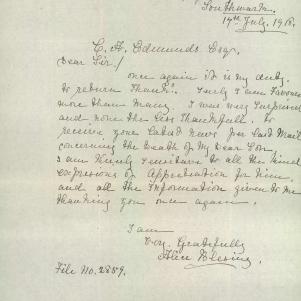 Southwark.
19th July, 1918.
C. A. Edmunds Esq.
Dear Sir/
once again it is my duty
to return Thanks. Surely I am Favoured
more than many. I was very Surprised
and none the less Thankfull. to
receive your Latest news per last Mail
concerning the Death of My Dear Son.
I am Truly Sensitive to all the kind
expressions of Appreciation for Him.
and all the Information given to me
thanking you once again.
I am
Very Gratefully
Alice Blessing.
File No. 2859.